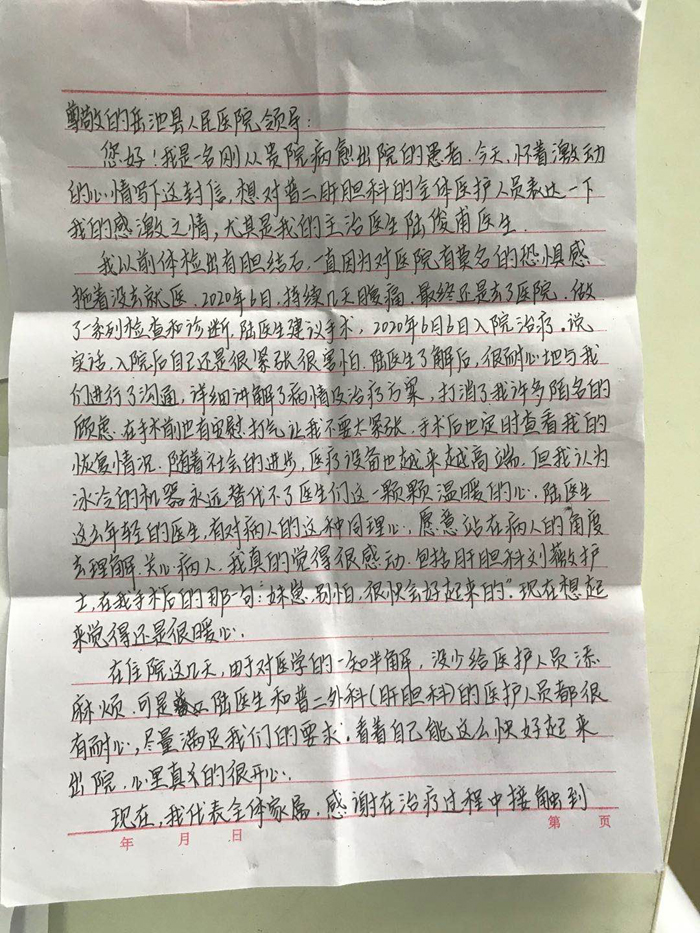 尊敬的岳池县人民医院领导：
您好！我是一名刚从贵院病愈出院的患者．今天，怀着激动
的心情写下这封信，想对普二肝胆科的全体医护人员表达一下
我的感激之情，尤其是我的主治医生陆俊甫医生．
我以前体检出有胆结石．一直因为对医院有莫名的恐惧感
拖着没去就医．2020年6日，持续几天腹痛．最终还是去了医院．做
了一系列检查和诊断．陆医生建议手术，2020年6月6日入院治疗．说
实话，入院后自己还是很紧张很害怕．陆医生了解后，很耐心地与我
们进行了沟通，详细讲解了病情及治疗方案，打消了我许多陌名的
顾虑．在手术前也有安慰．打气让我不要太紧张．手术后也定时查看我的
恢复情况．随着社会的进步，医疗设备也越来越高端．但我认为
冰冷的机器永远替代不了医生们这一颗颗温暖的心．陆医生
这么年轻的医生，有对病人的这种同理心，愿意站在病人的角度
去理解．关心病人．我真的觉得很感动．包括肝胆科刘薇护
士，在我手术后的那一句：“妹崽，别怕．很快会好起来的”．现在想起
来觉得还是很暖心．
在住院这几天，由于对医学的一知半解，没少给医护人员添
麻烦．可是陆医生和普二外科(肝胆科)的医护人员都很
有耐心，尽量满足我们的要求．看着自己能这么快好起来
出院．心里真的很开心．
现在，我代表全体家属，感谢在治疗过程中接触到
年 月 日 第 页